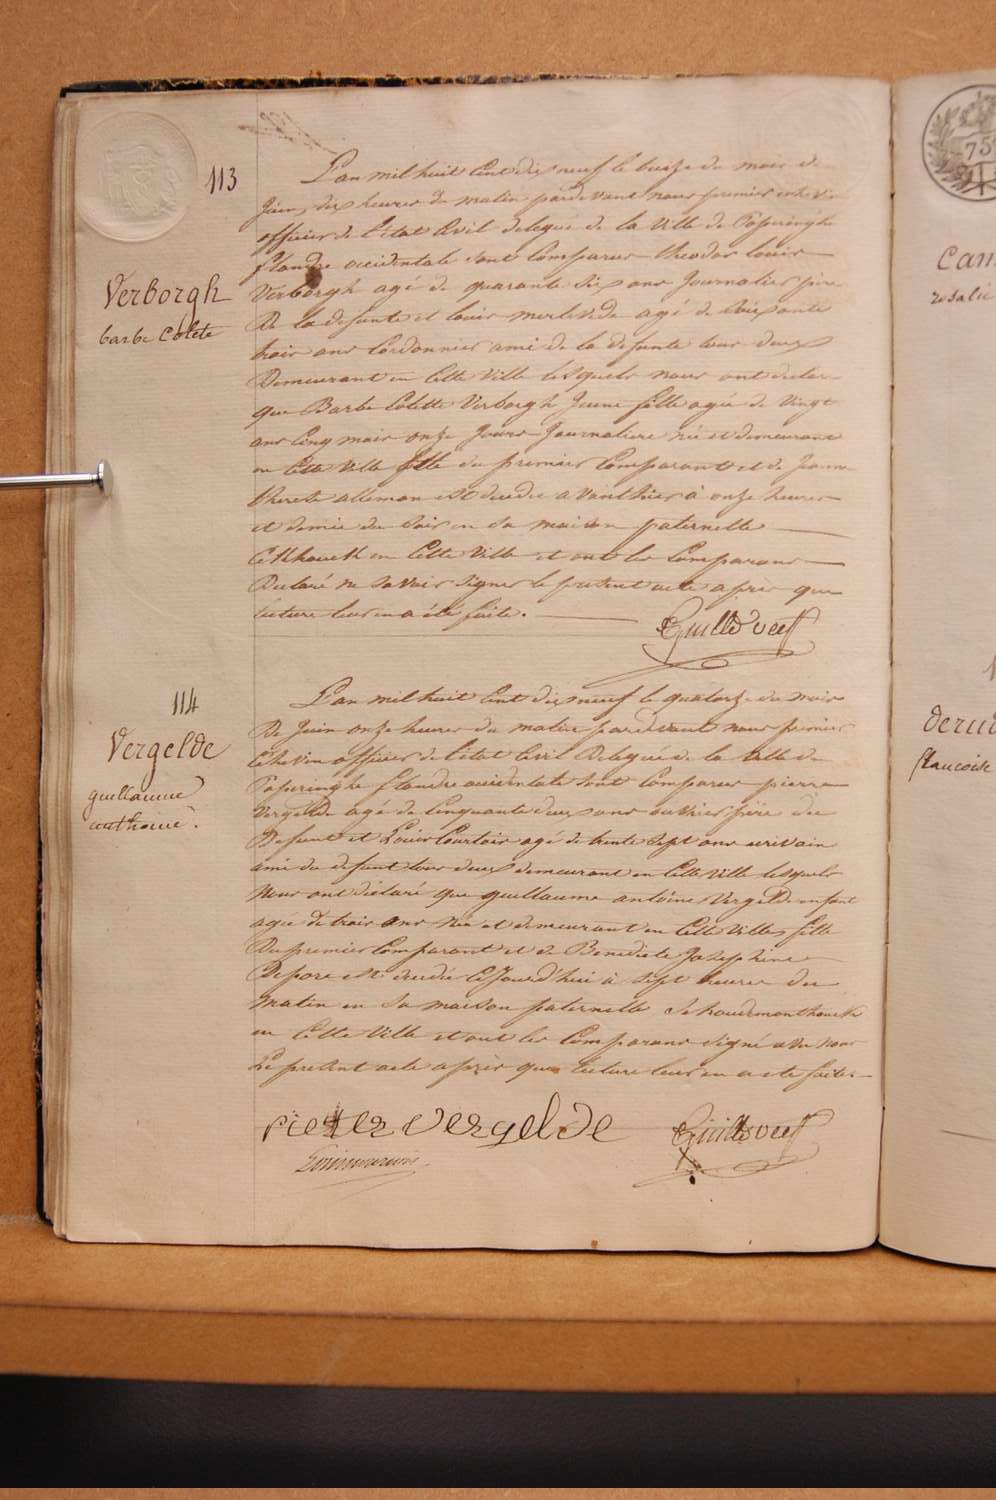 113
Verborgh
barbe Colete
L'an mil huit Cent dix neuf le treize du mois de
Juin, dix heures du matin pardevant nous premier echevin
officier de l'état Civil delegué de la ville de Poperinghe
flandre occidentale sont Comparus theodor louis
Verborgh agé de quarante six ans Journalier père
De la defunte et louis merlevede agé de soixante
trois ans Cordonnier ami de la defunte tous deux
Demeurant en Cette Ville lesquels nous ont declaré
que Barbe Colette Verborgh Jeune fille agée de Vingt
ans Cinq mois onze Jours Journaliere née et demeurant
en Cette Ville fille du premier Comparant et de Jeanne
therese alleman est decedée avanthier à onze heures
et demie du soir en sa maison paternelle
en Cette Ville et ont les Comparans
Declaré ne savoir signer le present acte après que
lecture leur en a été faite.
114
Vergelde
guillaume
anthoine.
L'an mil huit Cent dix neuf le quatorze du mois
De Juin onze heures du matin pardevant nous premier
Echevin officier de l'état Civil Delegué de la Ville de
Poperinghe flandre occidentale sont Comparus pierre
Vergelde agé de Cinquante deux ans ouvrier père du
Defunt et Louis Courtois agé de trente sept ans ecrivain
ami du defunt tous deux demeurant en Cette Ville lesquels
Nous ont déclaré que guillaume antoine Vergelde enfant
agée de trois ans née et demeurant en Cette Ville fille
Du premier Comparant et de Benedicte Josephine
Depore est decedée Cejourd'hui à sept heures du
Matin en sa maison paternelle
en Cette Ville et ont les Comparans signé avec nous
Le present acte après que lecture leur en a eté faite
pieter vergelde
Cam
rosalie
75
francoise